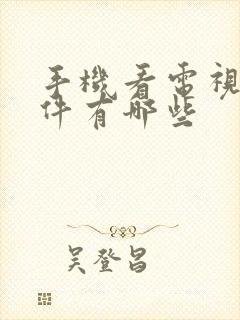 手機看電視
件有哪些
吴登昌